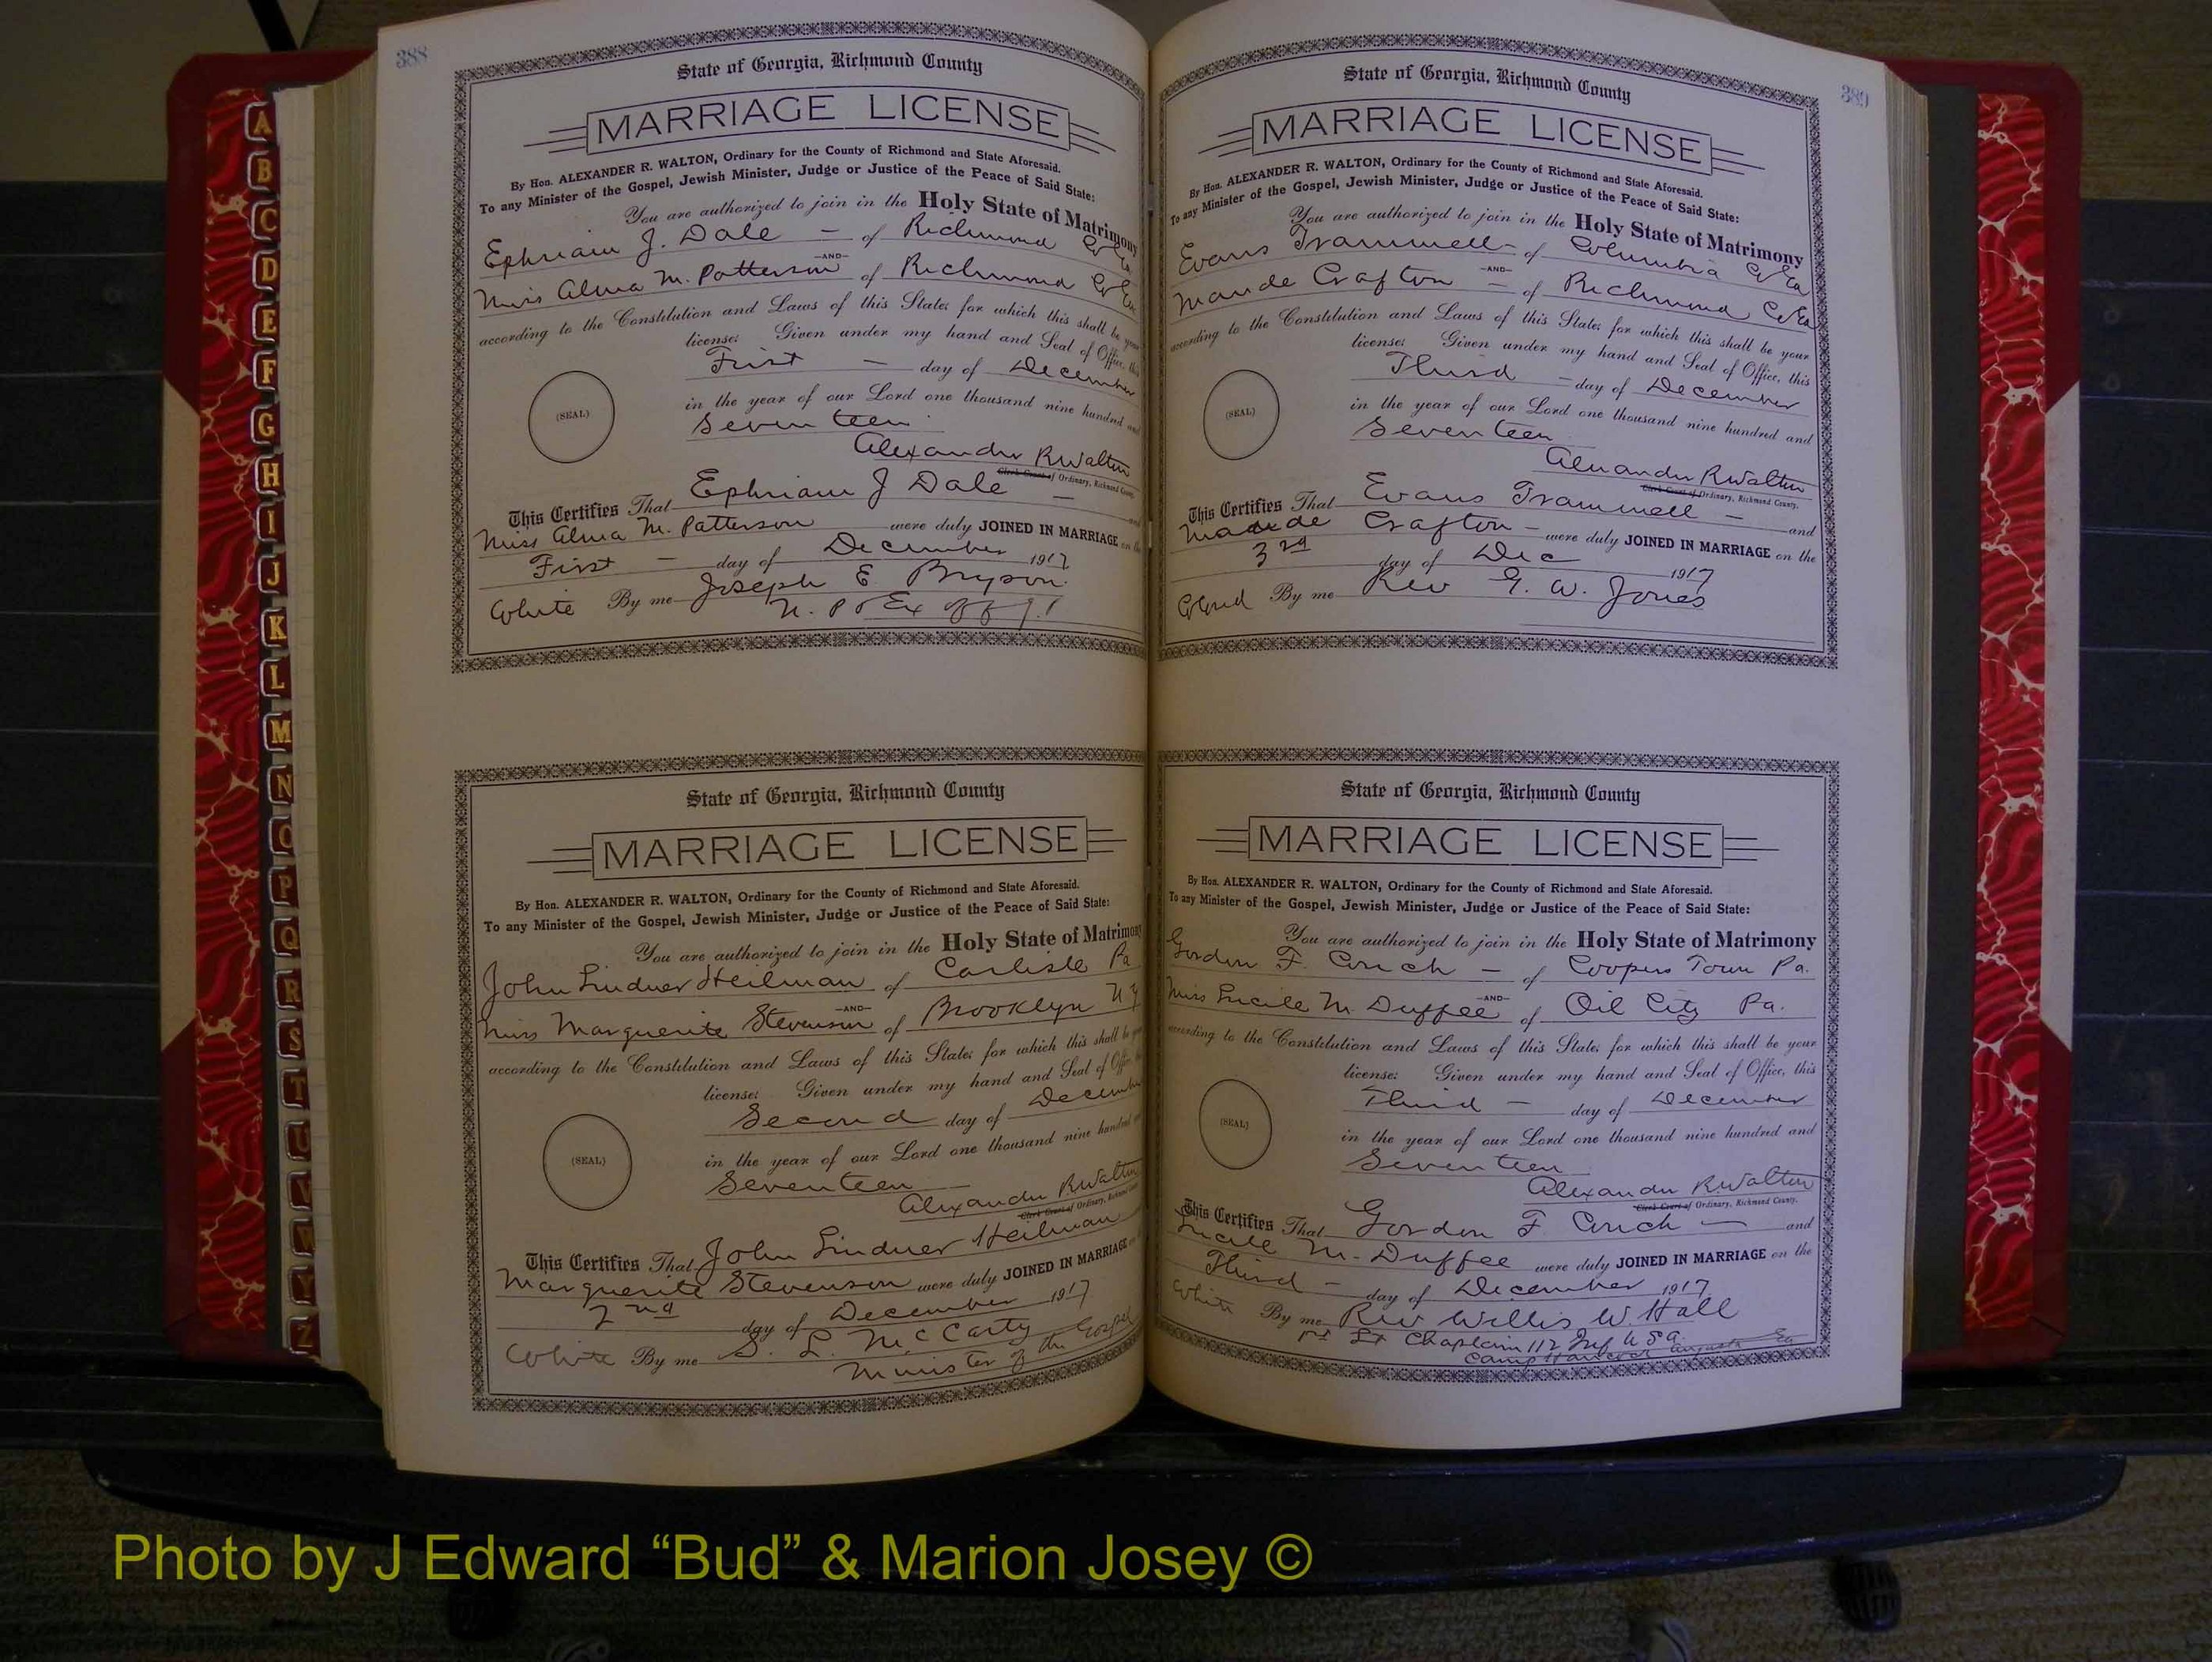 388
State of Georgia, Richmond County
MARRIAGE LICENSE
By Hon. ALEXANDER R. WALTON, Ordinary for the County of Richmond and State Aforesaid.
To any Minister of the Gospel, Jewish Minister, Judge or Justice of the Peace of Said State:
You are authorized to join in the Holy State of Matrimony
Ephriam J. Dale — of Richmond Co Ga
—AND—
Miss Alma M. Patterson of Richmond Co Ga
according to the Constitution and Laws of this State; for which this shall be your
license: Given under my hand and Seal of Office, this
First — day of December
(SEAL)
in the year of our Lord one thousand nine hundred and
Seventeen
Alexander R Walton
Clerk Court of Ordinary, Richmond County.
This Certifies That Ephriam J Dale — and
Miss Alma M. Patterson were duly JOINED IN MARRIAGE on the
First — day of December 1917
White By me Joseph E Bryson.
N. P & Ex off J.P
State of Georgia, Richmond County
MARRIAGE LICENSE
By Hon. ALEXANDER R. WALTON, Ordinary for the County of Richmond and State Aforesaid.
To any Minister of the Gospel, Jewish Minister, Judge or Justice of the Peace of Said State:
You are authorized to join in the Holy State of Matrimony
John Lindner Heilman of Carlisle Pa
—AND—
Miss Marguerite Stevenson of Brooklyn N Y
according to the Constitution and Laws of this State; for which this shall be your
license: Given under my hand and Seal of Office, this
Second day of December
(SEAL)
in the year of our Lord one thousand nine hundred and
Seventeen —
Alexander R Walton
Clerk Court of Ordinary, Richmond County.
This Certifies That John Lindner Heilman
Marguerite Stevenson were duly JOINED IN MARRIAGE on the
2nd day of December 1917
White By me S. L. McCarty
Minister of the Gospel
389
State of Georgia, Richmond County
MARRIAGE LICENSE
By Hon. ALEXANDER R. WALTON, Ordinary for the County of Richmond and State Aforesaid.
To any Minister of the Gospel, Jewish Minister, Judge or Justice of the Peace of Said State:
You are authorized to join in the Holy State of Matrimony
Evans Trammell — of Columbia Co Ga
—AND—
Maude Crafton — of Richmond Co Ga
according to the Constitution and Laws of this State; for which this shall be your
license: Given under my hand and Seal of Office, this
Third — day of December
(SEAL)
in the year of our Lord one thousand nine hundred and
Seventeen
Alexander R Walton
Clerk Court of Ordinary, Richmond County.
This Certifies That Evans Trammell — and
Maude Crafton — were duly JOINED IN MARRIAGE on the
3rd day of Dec 1917
Colored By me Rev G. W. Jones
State of Georgia, Richmond County
MARRIAGE LICENSE
By Hon. ALEXANDER R. WALTON, Ordinary for the County of Richmond and State Aforesaid.
To any Minister of the Gospel, Jewish Minister, Judge or Justice of the Peace of Said State:
You are authorized to join in the Holy State of Matrimony
Gordon F. Couch — of Coopers Town Pa.
—AND—
Miss Lucile M. Duffee of Oil City Pa.
according to the Constitution and Laws of this State; for which this shall be your
license: Given under my hand and Seal of Office, this
Third — day of December
(SEAL)
in the year of our Lord one thousand nine hundred and
Seventeen
Alexander R. Walton
Clerk Court of Ordinary, Richmond County.
This Certifies That Gordon F. Couch — and
Lucile M. Duffee were duly JOINED IN MARRIAGE on the
Third — day of December 1917
White By me Rev Willis W. Hall
1st Lt Chaplain 112 Inf U S A.
Camp Hancock Augusta Ga
A
B
C
D
E
F
G
H
I
J
K
L
M
N
O
P
Q
R
S
T
U
V
W
Y
Z
Photo by J Edward “Bud” & Marion Josey ©